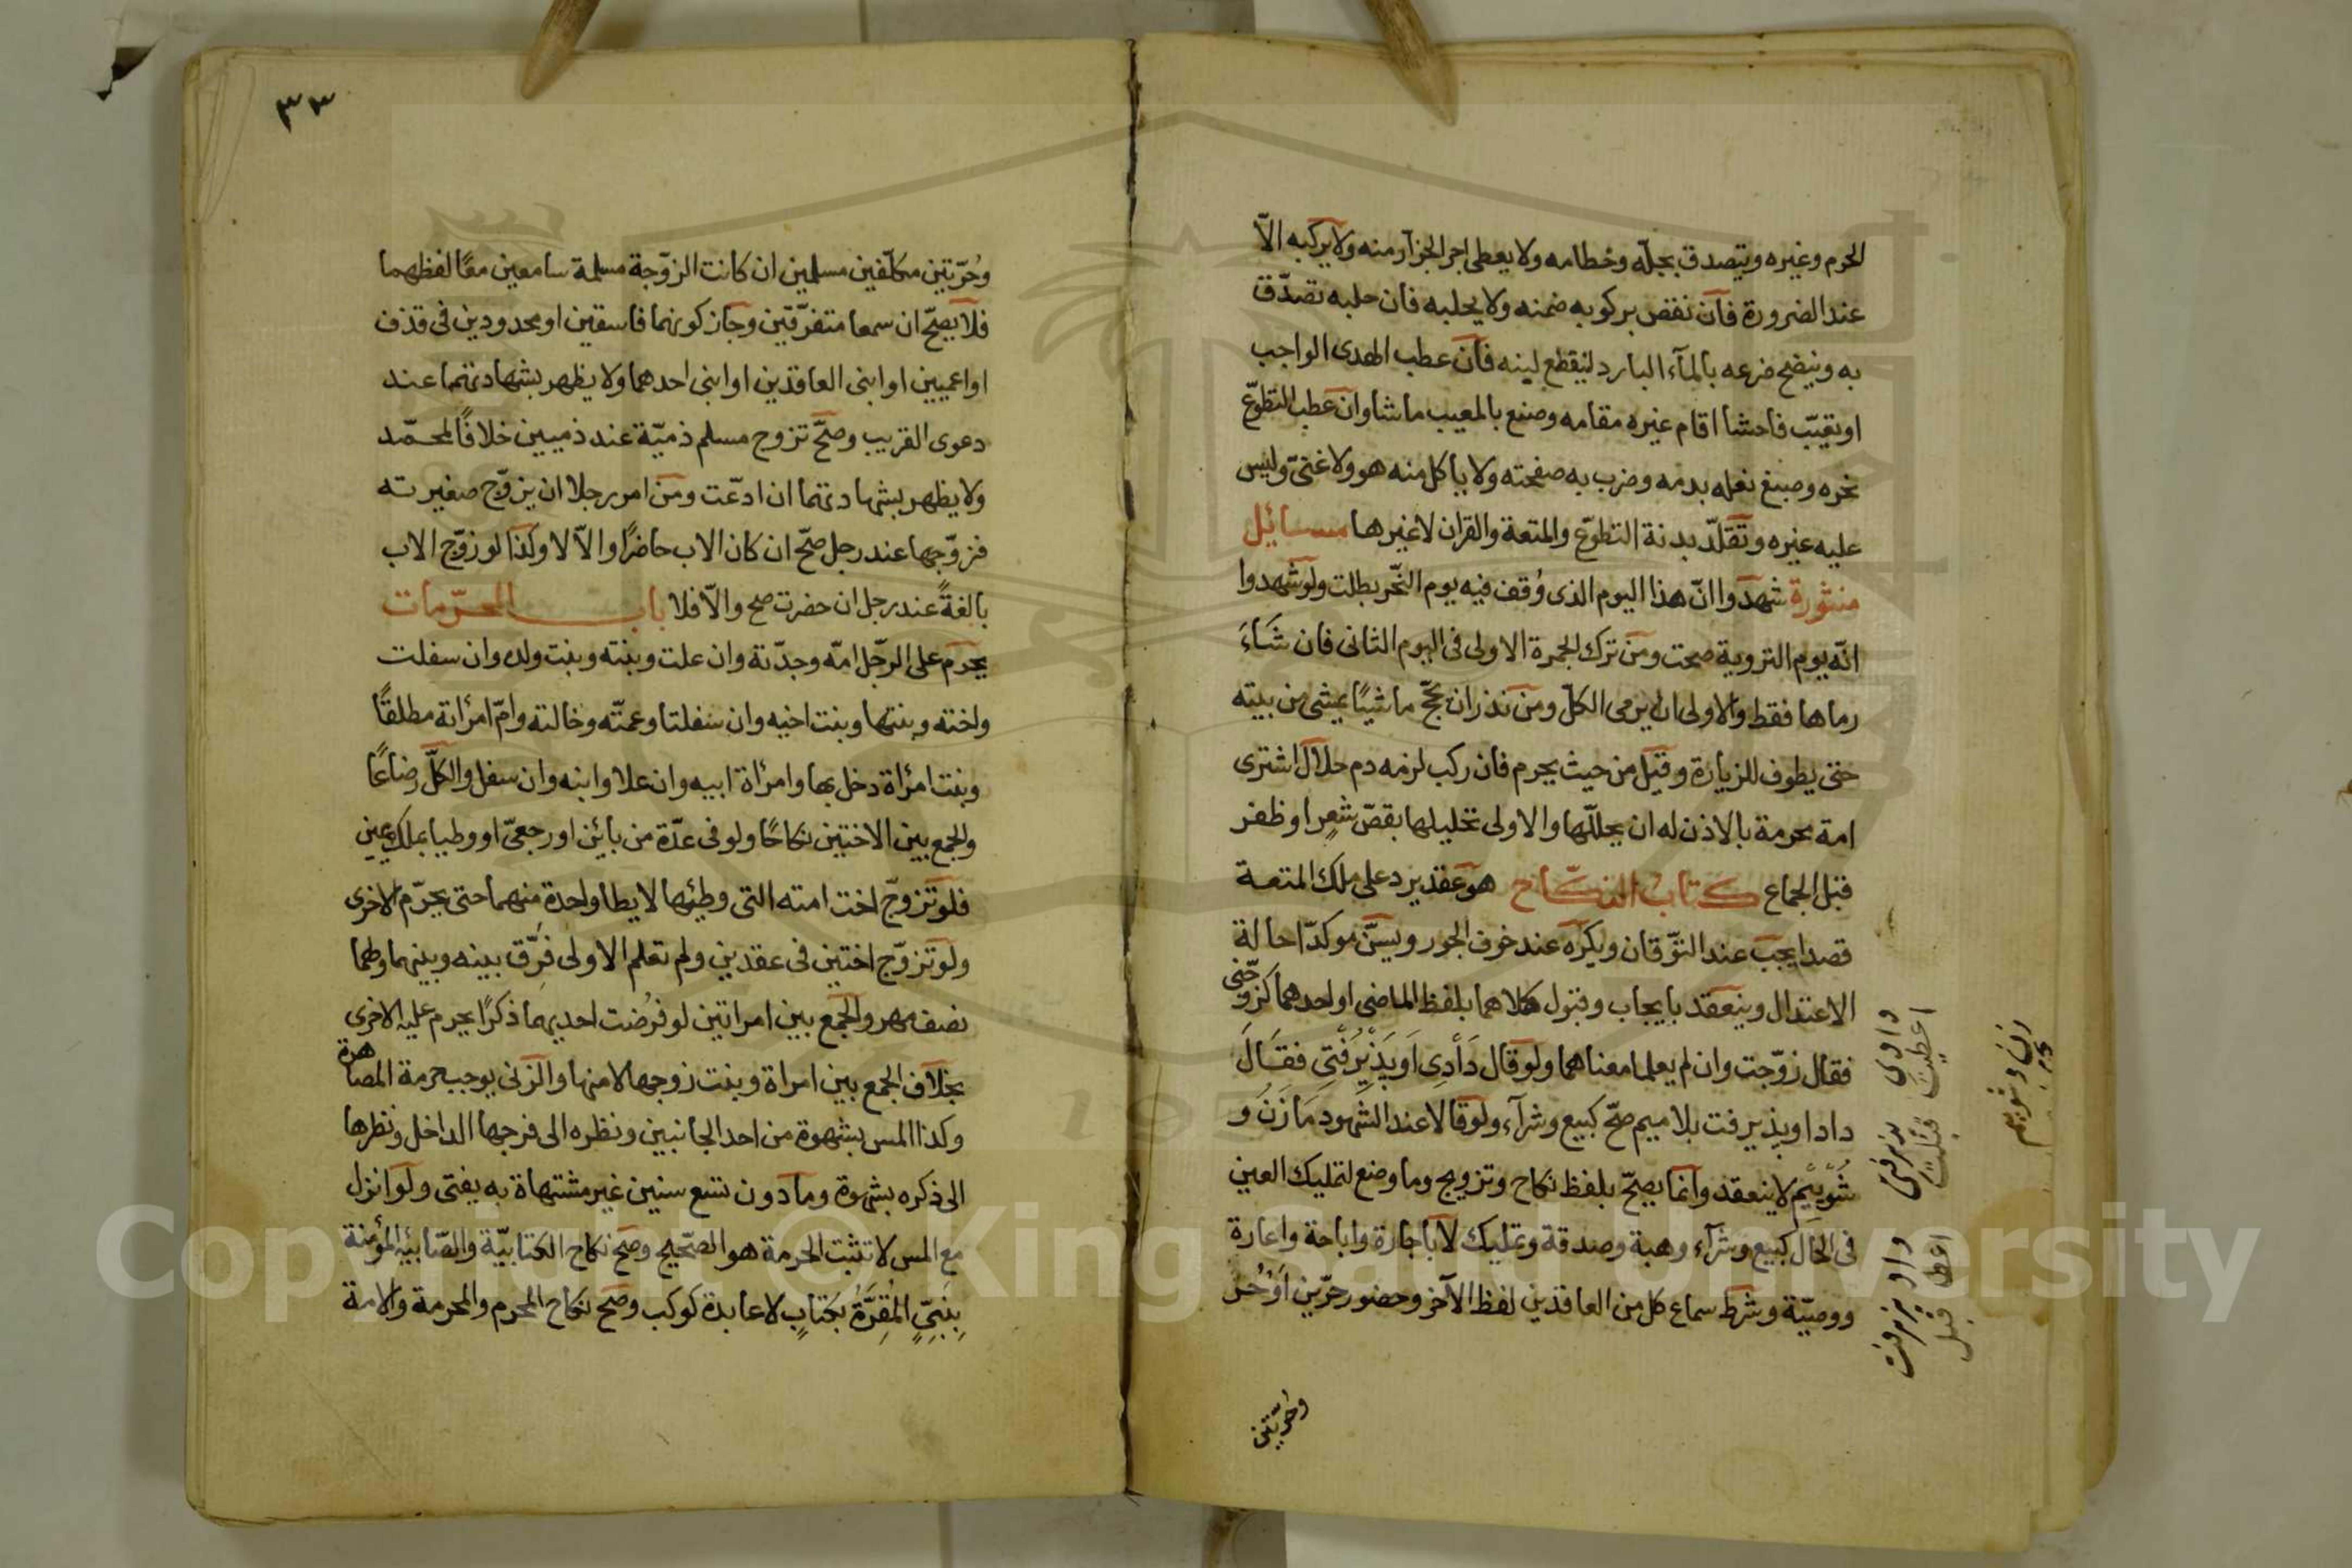 الحرم وغيره ويتصدق بجلّه وخطامه ولا يعطى اجر الجزآر منه ولا يركبه الاّ
عند الضرورة فان نقص بركوبه ضمنه ولا يحلبه فان حلبه تصدّق
به وينضح ضرعه بالمآء البارد لينقطع لبنه فان عطب الهدى الواجب
او تعيّب فاحشا اقام غيره مقامه وصنع بالمعيب ماشا وان عطب التطوّع
نحره وصبغ نعله بدمه وضرب به صفحته ولا ياكل منه هو ولا غنىّ وليس
عليه غيره وتقلّد بدنة التطوّع والمتعة والقران لا غيرها مسائل
منثورة شهدوا انّ هذا اليوم الذى وُقف فيه يوم النّحر بطلت ولو شهدوا
انّه يوم التروية صحت ومن ترك الجمرة الاولى فى اليوم الثانى فان شَاءَ
رماها فقط والاولى ان يرمى الكلّ ومن نذر ان يحجّ ماشيًا يمشى من بيته
حتى يطوف للزيارة وقيل من حيث يحرم فان ركب لزمه دم حلال اشترى
امة محرمة بالاذن له ان يحللّها والاولى تحليلها بقصّ شعرٍ او ظفر
قبل الجماع كتاب النكاح هو عقد يرد على ملك المتعة
قصدا يجب عند التوّقان ويكره عند خوف الجور ويسنّ موكدّا حالة
الاعتدال وينعقد بايجاب وقبول كلاهما بلفظ الماضى او احدهما كزوّجنى
فقال زوّجت وان لم يعلما معناهما ولو قال دَادِى اَو پَذِيرَفْتِى فقَالَ
داد او پذيرفت بلا ميم صحّ كبيع وشرآء ولو قالا عند الشهود مَا زَنُ و
شُوْيَيْم لا ينعقد وانما يصحّ بلفظ نكاح وتزويج وما وضع لتمليك العين
فى الحال كبيع وشرآء وهبة وصدقة وتمليك لا باجارة واباحة واعارة
ووصيّة وشرط سماع كل من العاقدين لفظ الآخر وحضور حرّين اَوْ حُر
وحُرّتين
دادى پذيرفتى
اعطيت قبلت
داد پذيرفت
اعطا قبل
زن و شوييم
٣٣
وحُرّتين مكلّفين مسلمين ان كانت الزوّجة مسلمة سامعين معًا لفظهما
فلا يصحّ ان سمعا متفرّقين وجاز كونهما فاسقين او محدودين فى قذف
او اعميين او ابنى العاقدين او ابنى احدهما ولا يظهر بشهادتهما عند
دعوى القريب وصحّ تزوج مسلم ذميّة عند ذميين خلافًا لمحمّد
ولا يظهر بشهادتهما ان ادّعت ومن امر رجلا ان يزوّج صغيرته
فزوّجها عند رجل صحّ ان كان الاب حاضرًا والاّ لا وكذا لو زوّج الاب
بالغةً عند رجل ان حضرت صح والاّ فلا باب المحرّمات
يحرم على الرّجل امّه وجدّته وان علت وبنته وبنت ولده وان سفلت
واخته وبنتها وبنت اخيه وان سفلتا وعمتّه وخالته وامّ امرأته مطلقًا
وبنت امرأة دخل بها وامرأة ابيه وان علا وابنه وان سفل والكلّ رضاعًا
والجمع بين الاختين نكاحًا ولو فى عدّة من بائن او رجعىّ او وطيا بملك يمين
فلو تزوجّ اخت امته التى وطيها لا يطا واحدة منهما حتى يحرّم الاخرى
ولو تزوّج اختين فى عقدين ولم تعلم الاولى فرّق بينه وبينهما ولهما
نصف مهر والجمع بين امراتين لو فرُضت احديهما ذكرًا يحرم عليه الاخرى
بخلاف الجمع بين امراة وبنت زوجها لا منها والزنى يوجب حرمة المصاهرة
وكذا المس بشهوة من احد الجانبين ونظره الى فرجها الداخل ونظرها
الى ذكره بشهوة وما دون تسع سنين غير مشتهاة به يفتى ولو انزل
مع المس لا تثبت الحرمة هو الصّحيح وصحّ نكاح الكتابيّة والصّابئيّة المؤمنة
بِنَبِىٍّ المُقِرَّةُ بكتابٍ لا عابدة كوكب وصحّ نكاح المحرم والمحرمة والامة
Copyright © King Saud University